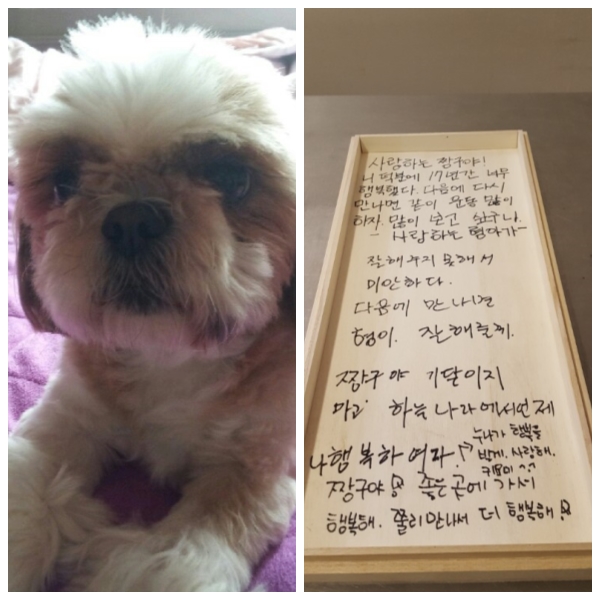 사랑하는 짱구야!
니 덕분에 17년간 너무
행복했다. 다음에 다시
만나면 같이 운동 많이
하자. 많이 보고 싶구나.
- 사랑하는 형아가 -
잘해주지 못해서
미안하다.
다음에 만나면
형이. 잘해줄께.
짱구야 기달이지
마고 하늘나라에서언제
나행복하여라!
누나가 행복을
빌께. 사랑해.
짱구야 좋은곳에 가서
행복해. 우리만나서 더 행복해!